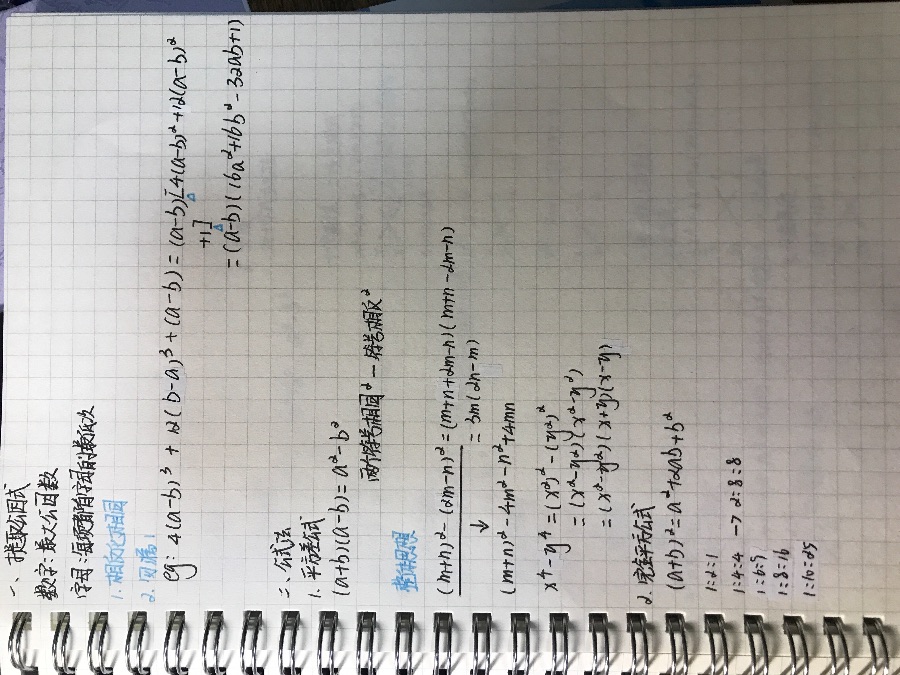 一、提取公因式
数字:最大公因数
字母:每项都有的字母的最低次
1. 相反化相同
2. 别漏1
eg: 4(a-b)³+12(b-a)³+(a-b)=(a-b)[4(a-b)²+12(a-b)²
+1]
=(a-b)(16a²+16b²-32ab+1)
二、公式法
1. 平方差公式
(a+b)(a-b)=a²-b²
两个符号相同²-符号相反²
整体思想
(m+n)²-(2m-n)²=(m+n+2m-n)(m+n-2m-n)
=3m(2n-m)
↓
(m+n)²-4m²-n²+4mn
x⁴-y⁴=(x²)²-(y²)²
=(x²-y²)(x²-y²)
=(x²-y²)(x+y)(x-y)
2. 完全平方公式
(a+b)²=a²+2ab+b²
1:2:1
1:4:4 → 2:8:8
1:6:9
1:8:16
1:10:25